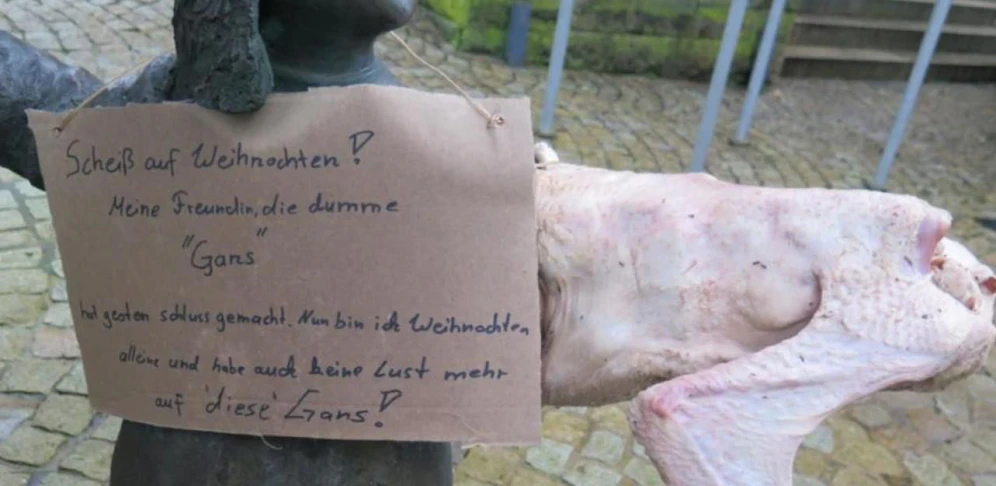 Scheiß auf Weihnachten!
Meine Freundin, die dumme
"Gans"
hat gestern schluss gemacht. Nun bin ich Weihnachten
alleine und habe auch keine Lust mehr
auf 'diese' Gans!